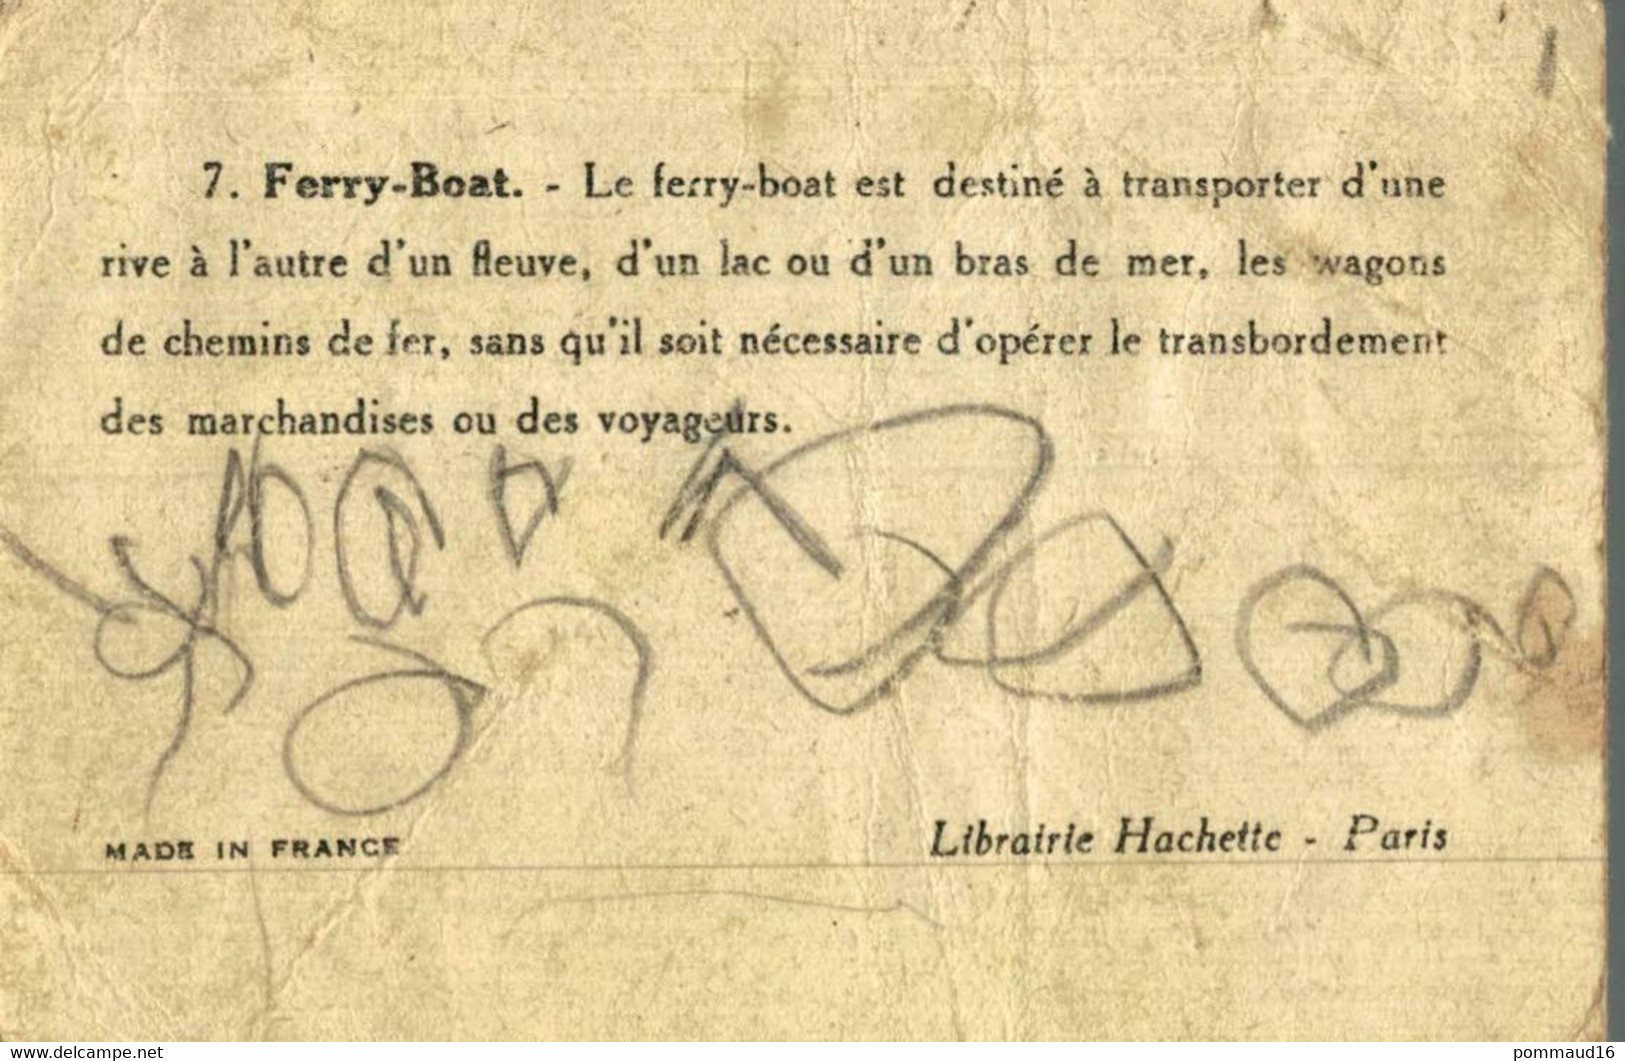 7. Ferry-Boat. - Le ferry-boat est destiné à transporter d'une
rive à l'autre d'un fleuve, d'un lac ou d'un bras de mer, les wagons
de chemins de fer, sans qu'il soit nécessaire d'opérer le transbordement
des marchandises ou des voyageurs.
MADE IN FRANCE
Librairie Hachette - Paris
www.delcampe.net
pommaud16